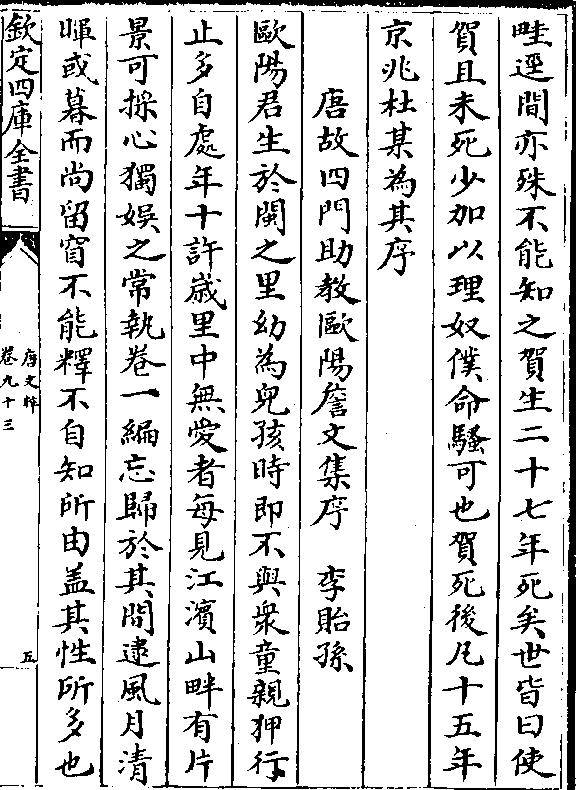 畦逕間亦殊不能知之賀生二十七年死矣世皆曰使
賀且未死少加以理奴僕命騷可也賀死後凡十五年
京兆杜某為其序
唐故四門助教歐陽詹文集序　李貽孫
歐陽君生於閩之里幼為兒孩時即不與衆童親狎行
止多自處年十許歳里中無愛者每見江濱山畔有片
景可採心獨娛之常執卷一編忘歸於其間逮風月清
暉或暮而尚留窅不能釋不自知所由盖其性所多也
欽定四庫全書
唐文粹
卷九十三
五